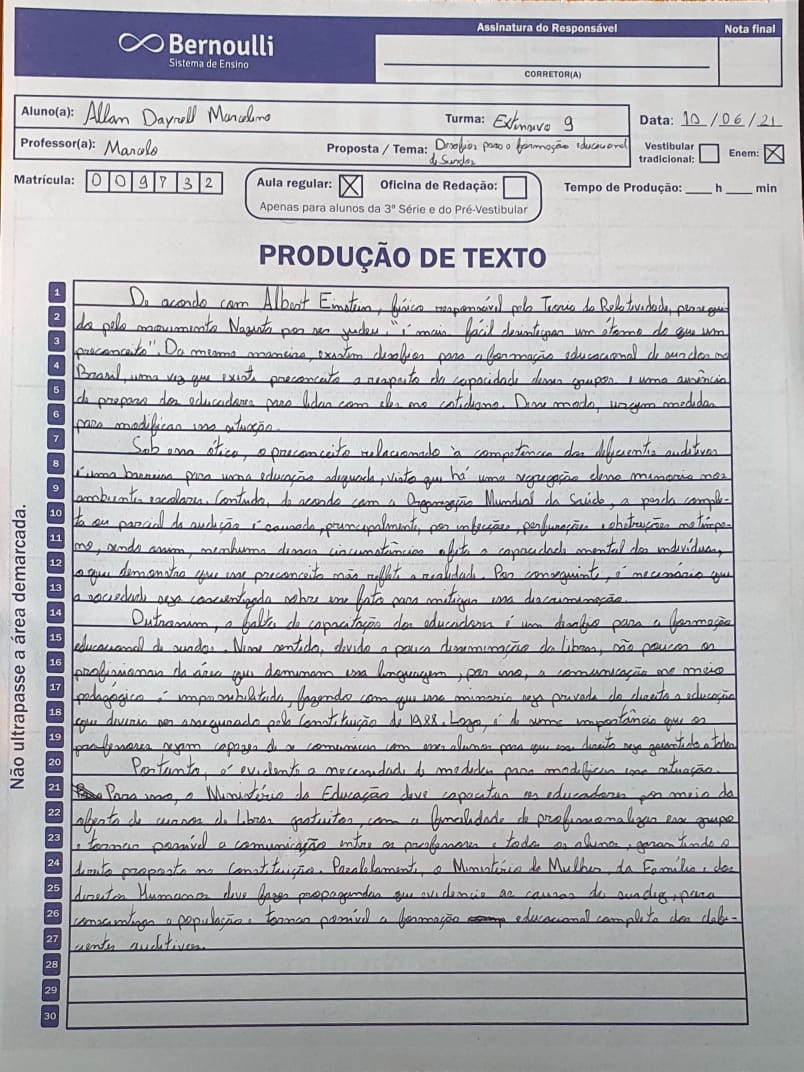 Bernoulli
Sistema de Ensino
Assinatura do Responsável
Nota final
CORRETOR(A)
Aluno(a): Allan Dayrell Marcelino
Turma: Extensivo 9
Data: 10/06/21
Professor(a): Marcelo
Proposta / Tema: Desafios para a formação educacional de Surdos
Vestibular tradicional:
Enem: X
Matrícula: 009732
Aula regular: X
Oficina de Redação:
Tempo de Produção: ____ h ____ min
Apenas para alunos da 3ª Série e do Pré-Vestibular
PRODUÇÃO DE TEXTO
Não ultrapasse a área demarcada.
1 De acordo com Albert Einstein, físico responsável pela Teoria da Relatividade, persegui-
2 do pelo movimento Nazista por ser judeu, "é mais fácil desintegrar um átomo do que um
3 preconceito". Da mesma maneira, existem desafios para a formação educacional de surdos no
4 Brasil, uma vez que existe preconceito a respeito da capacidade desses grupos e uma ausência
5 de preparo dos educadores para lidar com eles no cotidiano. Desse modo, urgem medidas
6 para modificar essa situação.
7 Sob essa ótica, o preconceito relacionado à competência dos deficientes auditivos
8 é uma barreira para uma educação adequada, visto que há uma segregação dessa minoria nos
9 ambientes escolares. Contudo, de acordo com a Organização Mundial da Saúde, a perda comple-
10 ta ou parcial da audição é causada, principalmente, por infecções, perfurações e obstruções no tímpa-
11 no, sendo assim, nenhuma dessas circunstâncias afeta a capacidade mental dos indivíduos,
12 o que demonstra que esse preconceito não reflete a realidade. Por conseguinte, é necessário que
13 a sociedade seja conscientizada sobre esse fato para mitigar essa discriminação.
14 Outrossim, a falta de capacitação dos educadores é um desafio para a formação
15 educacional de surdos. Nesse sentido, devido a pouca disseminação da libras, são poucos os
16 profissionais da área que dominam essa linguagem, por isso, a comunicação no meio
17 pedagogico é impossibilitada, fazendo com que essa minoria seja privada do direito a educação
18 que deveria ser assegurado pela Constituição de 1988. Logo, é de suma importância que os
19 professores sejam capazes de se comunicar com esses alunos para que esse direito seja garantido a todos
20 Portanto, é evidente a necessidade de medidas para modificar essa situação.
21 Para isso, o Ministério da Educação deve capacitar os educadores por meio da
22 oferta de cursos de libras gratuitos, com a finalidade de profissionalizar esse grupo
23 e tornar possível a comunicação entre os professores e todos os alunos, garantindo o
24 direito proposto na Constituição. Paralelamente, o Ministério da Mulher, da Família e dos
25 direitos Humanos deve fazer propagandas que evidencie as causas da surdez, para
26 a população e tornar possível a formação educacional completa dos defi-
27 cientes auditivos.
28
29
30